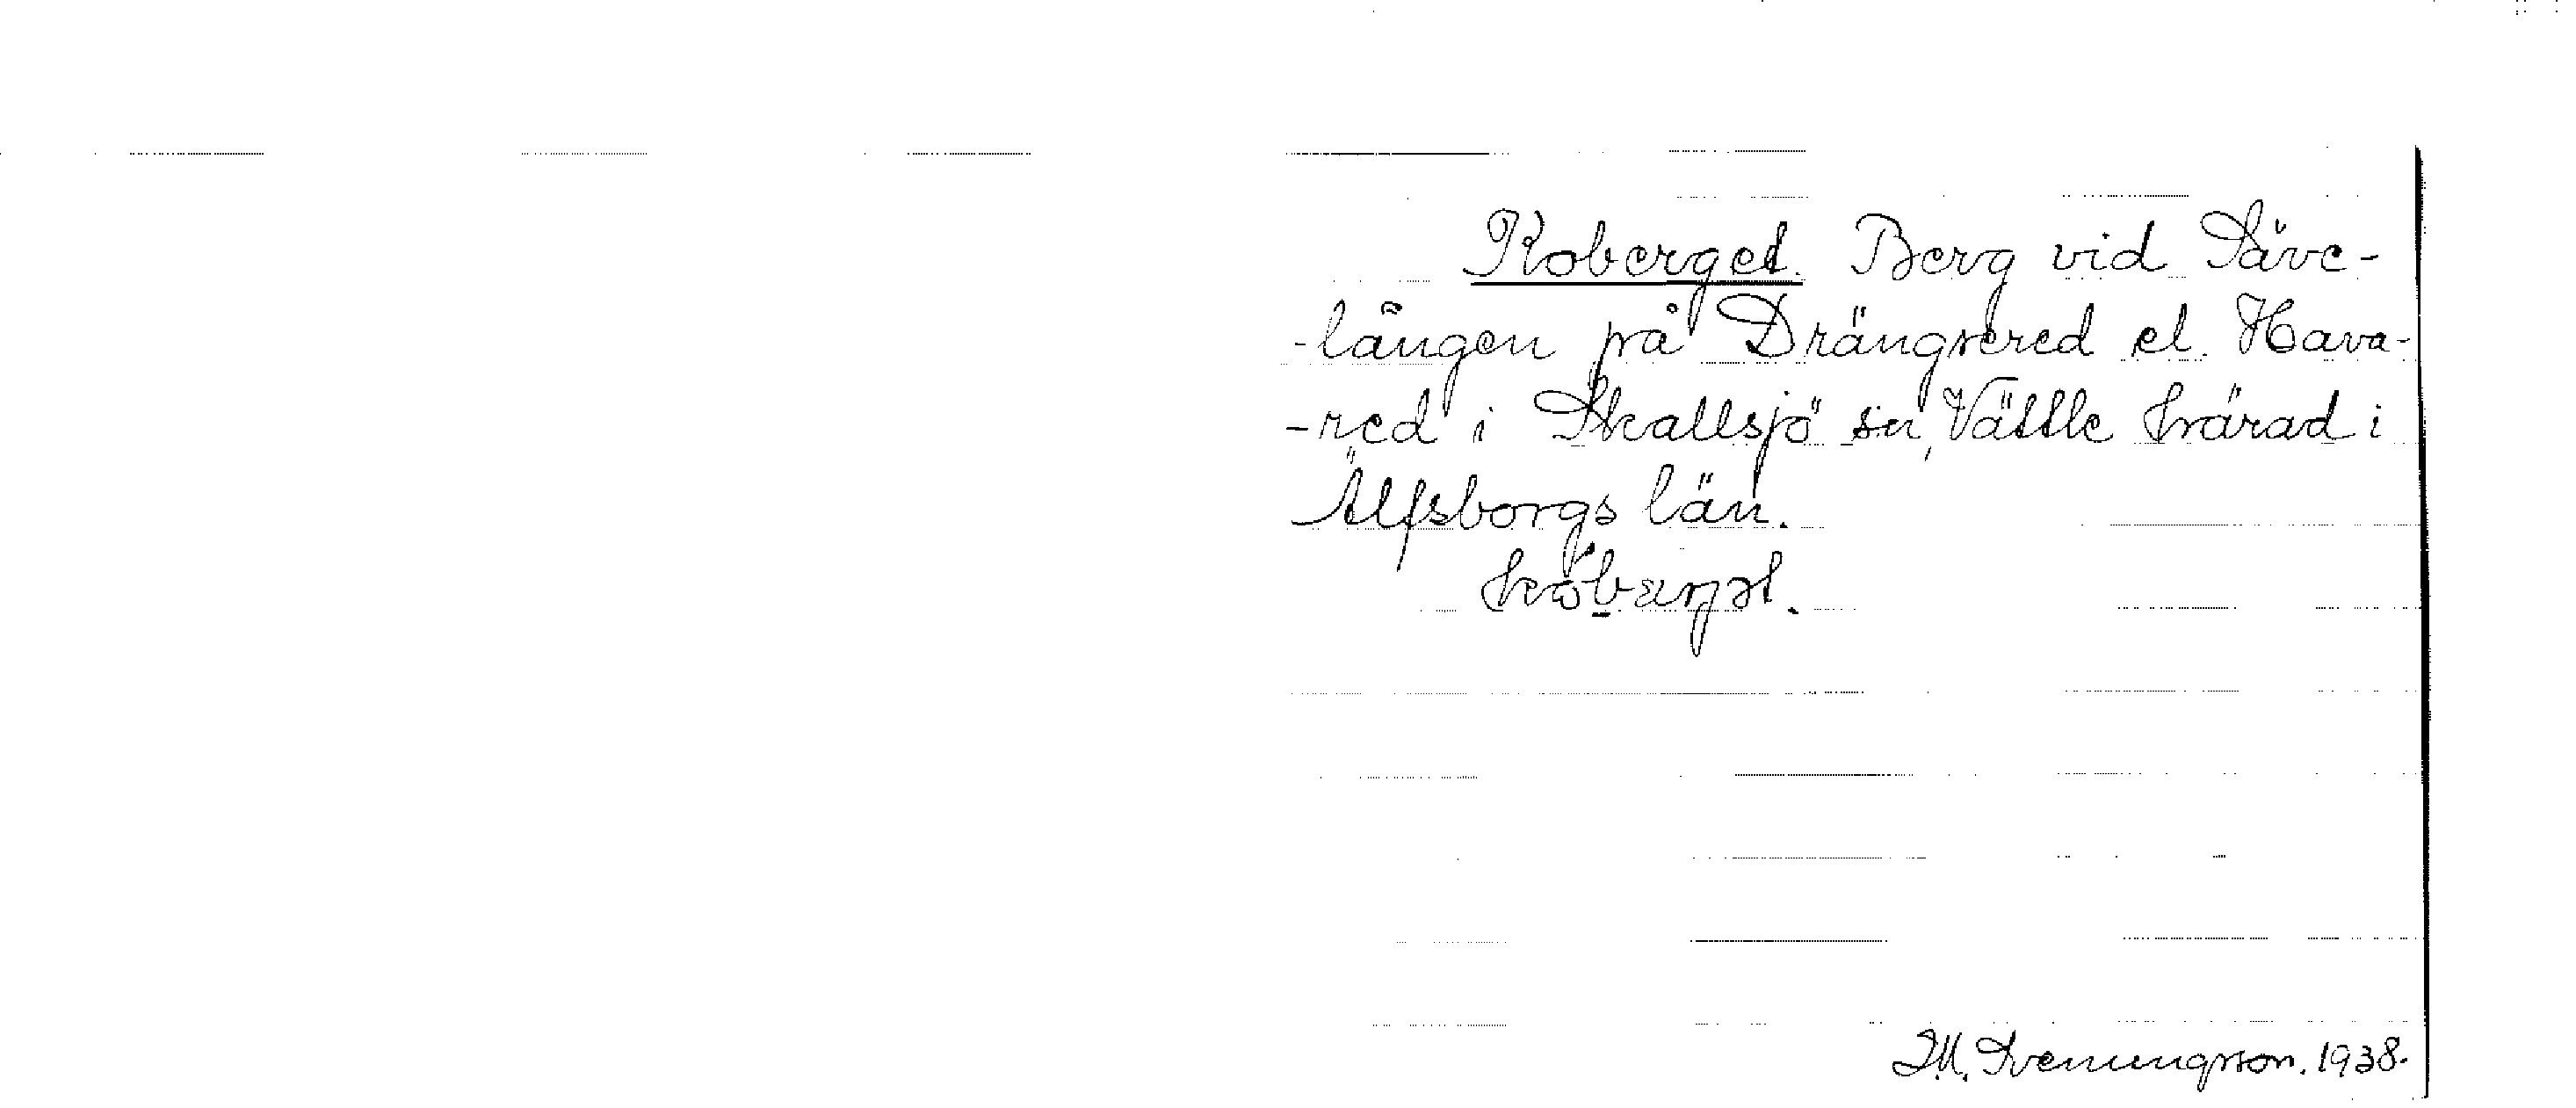 Koberget. Berg vid Säve-
-lången på Drängsered el. Hava-
-red i Skallsjö sn, Vättle härad i
Älfsborgs län.
M. Svenungsson. 1938.